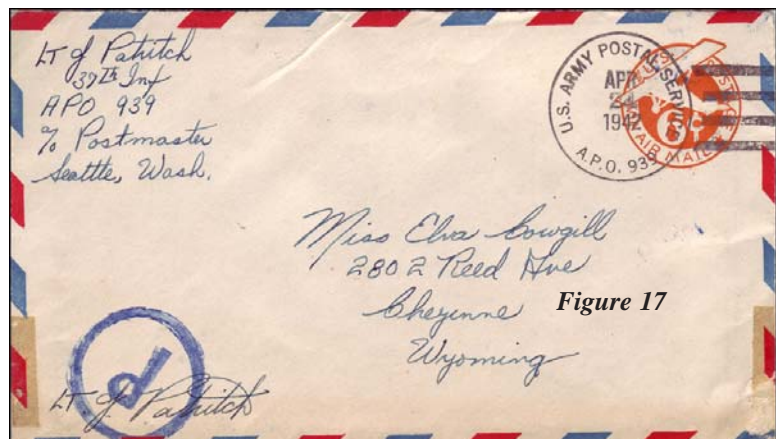 Lt J Patritch
37th Inf
APO 939
℅ Postmaster
Seattle, Wash.
U.S. ARMY POSTAL SERVICE
APR
24
1942
A.P.O. 939
6¢
AIR MAIL
Miss Elva Cowgill
2802 Reed Ave
Cheyenne
Wyoming
Figure 17
P
Lt J Patritch